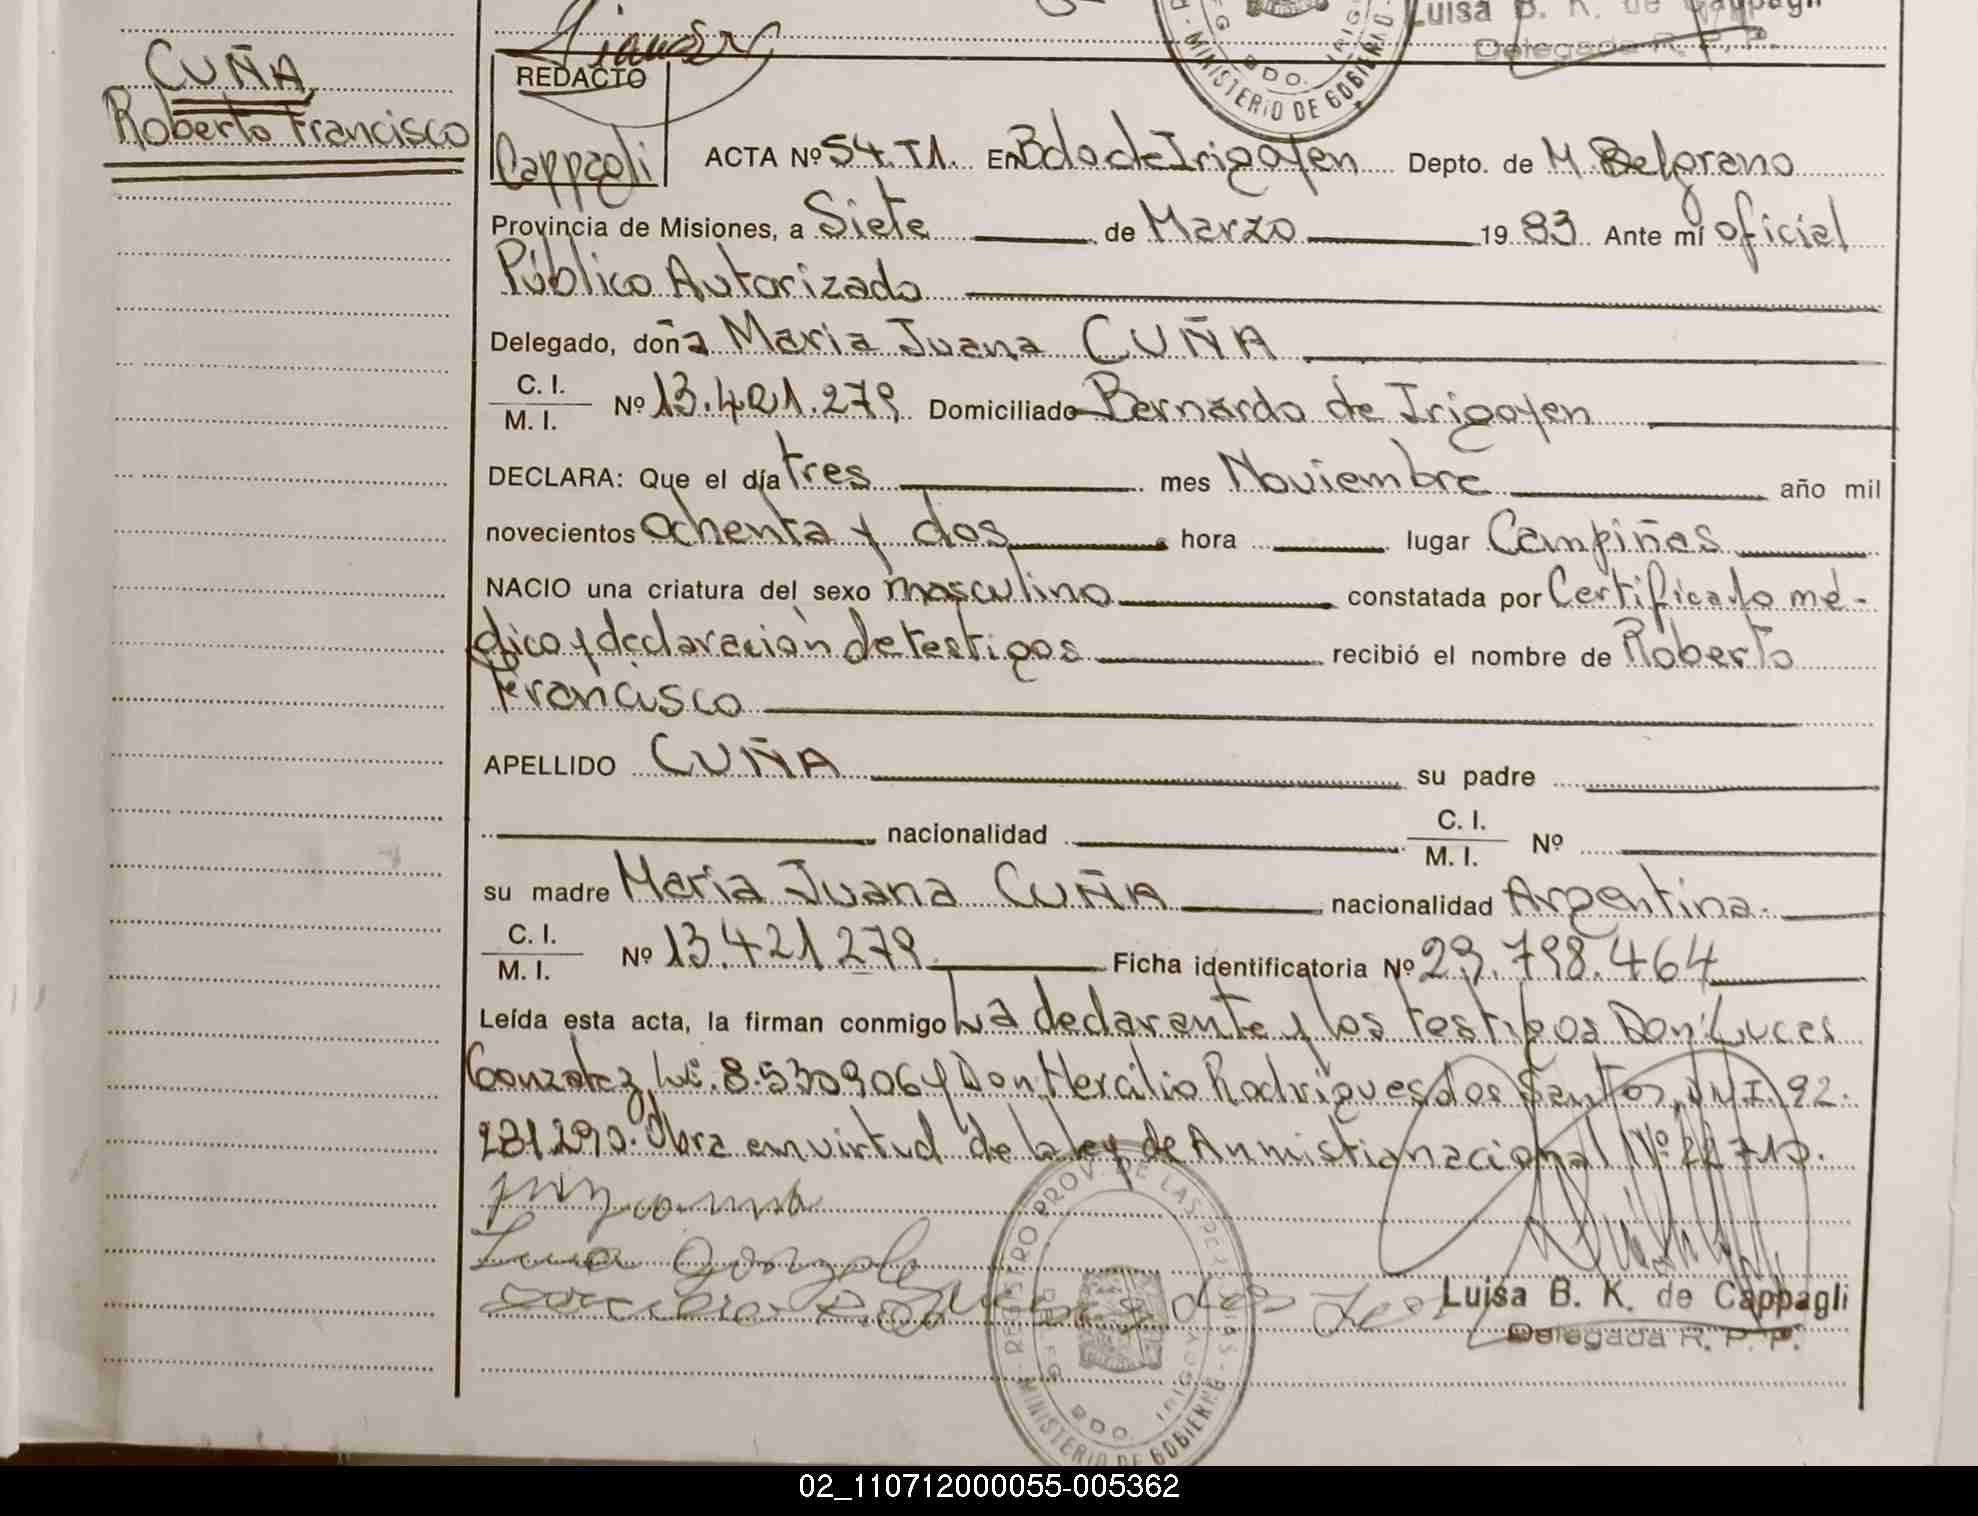 Luisa B. K. de Cappagli
Delegada R. P. P.
MINISTERIO DE GOBIERNO
BDO. IRIG
CUÑA
Roberto Francisco
REDACTO
Cappagli
ACTA Nº 54. T1. En Bdo de Irigoyen Depto. de M. Belgrano
Provincia de Misiones, a Siete de Marzo 19 83 Ante mí oficial
Público Autorizado
Delegado, doña Maria Juana CUÑA
C. I.
M. I.
Nº 13.421.279 Domiciliado Bernardo de Irigoyen
DECLARA: Que el día tres mes Noviembre año mil
novecientos ochenta y dos hora lugar Campiñas
NACIO una criatura del sexo masculino constatada por Certificado mé-
dico y declaración de testigos recibió el nombre de Roberto
Francisco
APELLIDO CUÑA su padre
nacionalidad C. I.
M. I. Nº
su madre Maria Juana CUÑA nacionalidad Argentina.
C. I.
M. I.
Nº 13.421.279 Ficha identificatoria Nº 29.798.464
Leída esta acta, la firman conmigo La declarante y los testigos Don: Luces
Gonzalez L.E. 8.530906 y Don: Hercilio Rodrigues dos Santos, D.N.I. 92.
231.290. Obra en virtud de la ley de Anmistia nacional Nº 22710.
Luca Gonzale
REGISTRO PROV. DE LAS PERSONAS
MINISTERIO DE GOBIERNO
BDO. IRIGOYEN
Luisa B. K. de Cappagli
Delegada R. P. P.
02_110712000055-005362